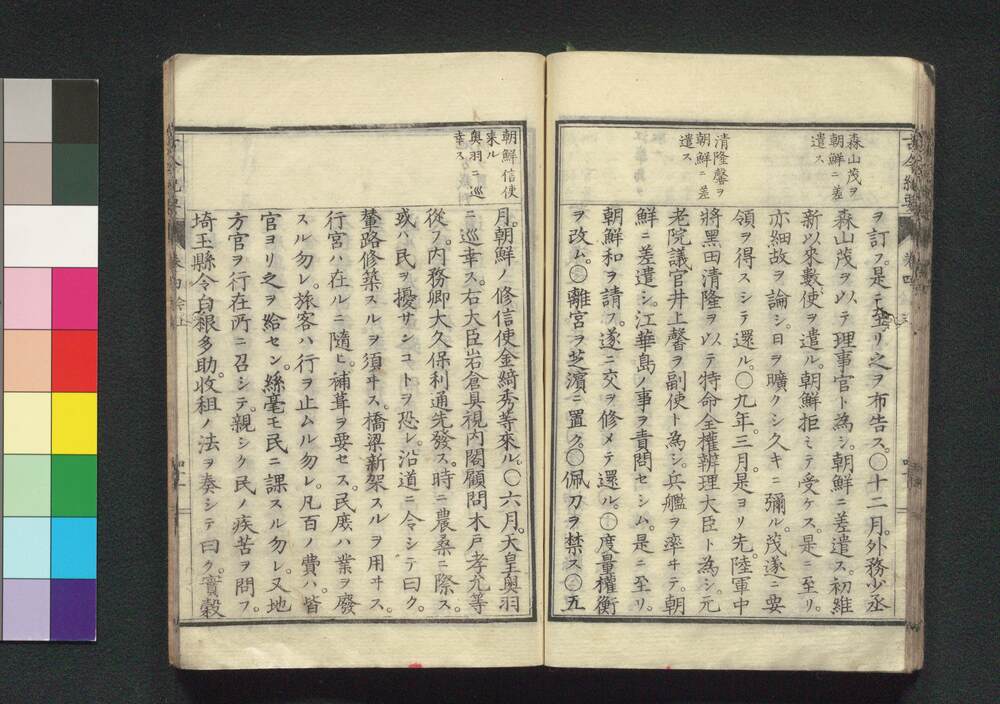 森山茂ヲ
朝鮮ニ差
遣ス
清隆馨ヲ
朝鮮ニ差
遣ス
ヲ訂フ。是ニ至リ之ヲ布告ス。〇十二月。外務少丞
森山茂ヲ以テ理事官ト為シ。朝鮮ニ差遣ス。初維
新以來數使ヲ遣ル。朝鮮拒ミテ受ケス。是ニ至リ。
亦細故ヲ論シ。日ヲ曠クシ久キニ彌ル。茂遂ニ要
領ヲ得スシテ還ル。〇九年。三月。是ヨリ先。陸軍中
將黑田清隆ヲ以テ特命全權辨理大臣ト為シ。元
老院議官井上馨ヲ副使ト為シ。兵艦ヲ率ヰテ。朝
鮮ニ差遣シ。江華島ノ事ヲ責問セシム。是ニ至リ。
朝鮮和ヲ請フ。遂ニ交ヲ修メテ還ル。〇度量權衡
ヲ改ム。〇離宮ヲ芝濱ニ置ク。〇佩刀ヲ禁ス。〇五
朝鮮信使
來ル
奥羽ニ巡
幸ス
月。朝鮮ノ修信使金綺秀等來ル。〇六月。天皇奥羽
ニ巡幸ス。右大臣岩倉具視内閣顧問木戸孝允等
從フ。内務卿大久保利通先發ス。時ニ農桑ニ際ス。
或ハ民ヲ擾サンコトヲ恐レ。沿道ニ令シテ曰ク。
輦路修築スルヲ須ヰス。橋梁新架スルヲ用ヰス。
行宮ハ在ルニ隨ヒ。補葺ヲ要セス。民庶ハ業ヲ廢
スル勿レ。旅客ハ行ヲ止ムル勿レ。凡百ノ費ハ。皆
官ヨリ之ヲ給セン。絲毫モ民ニ課スル勿レ。又地
方官ヲ行在所ニ召シテ。親シク民ノ疾苦ヲ問フ。
埼玉縣令白根多助。收租ノ法ヲ奏シテ曰ク。實穀